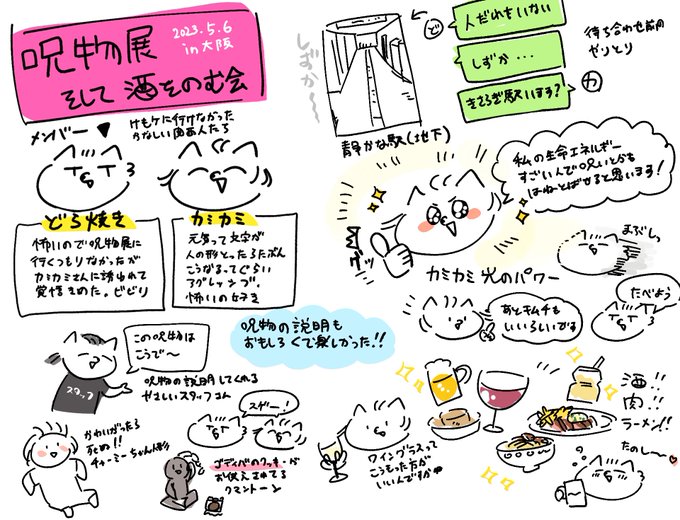 呪物展
そして酒をのむ会
2023.5.6
in大阪
メンバー
けもケに行けなかった
かなしい関西人たち
どろ焼き
怖いので呪物展に
行くつもりなかったが
カミカミさんに誘われて
覚悟きめた。ビビリ
カミカミ
元気って文字が
人の形とったらたぶん
こうなるってぐらい
アグレッシブ。
怖いの好き
しずか〜
静かな駅(地下)
ど
人だれもいない
しずか・・・
きさらぎ駅います?
カ
待ち合わせ前の
やりとり
私の生命エネルギー
すごいんで呪いとかも
はねとばせると思います!
グッ
カミカミ 光のパワー
まぶしっ
あとキムチも
いいらしいでる
たべよう
呪物の説明も
おもしろくて楽しかった!!
この呪物は
こうで〜
スタッフ
呪物の説明してくれる
やさしいスタッフさん
かわいがったら
死ぬ!!
チャーミーちゃん人形
スゲー!
ゴディバのクッキーが
お供えされてる
クマントーン
ワイングラスって
こうもった方が
いいんですか
酒!
肉!!
ラーメン!!
たのし〜